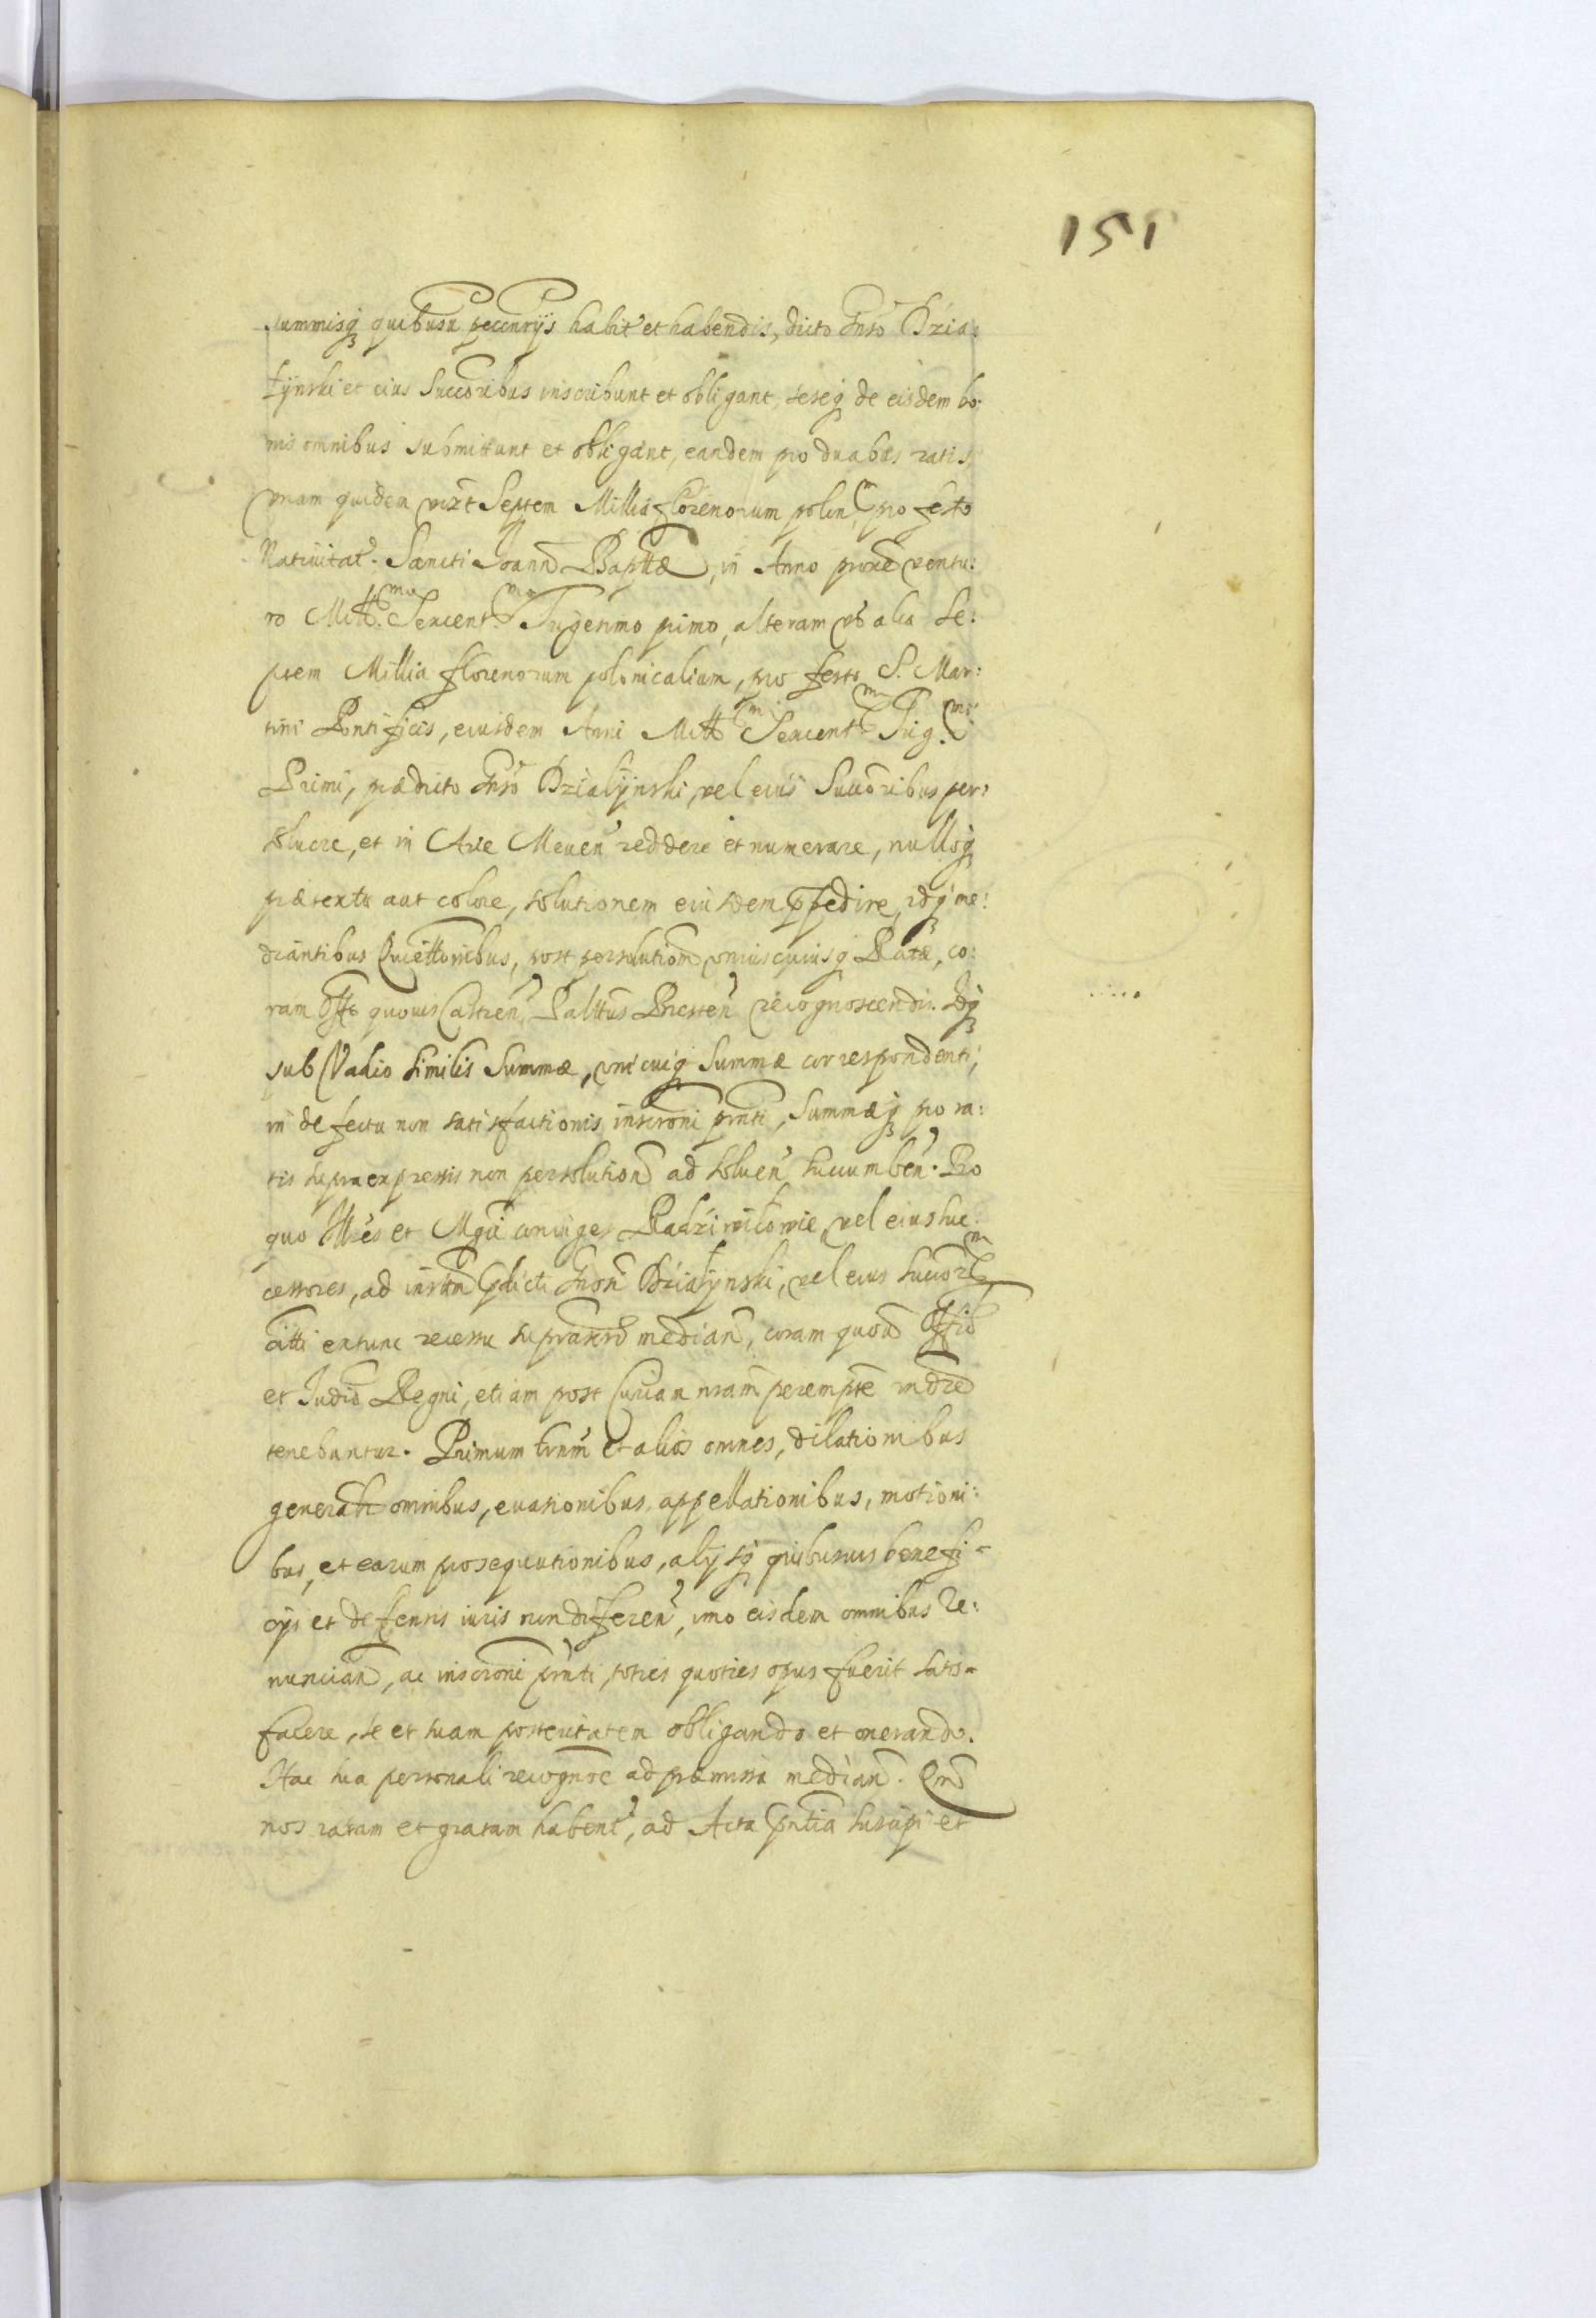 151
summisq quibusu pecunÿs habit et habendis, dicto Gnso Dzia:
łÿnski et eius Succoribus inscribunt et obligant, seseq de eisdem bo:
nis omnibus submittunt et obligant, eandem pro duabus ratis,
vnam quidem vizt Septem Millia florenorum polon, pro festo
Natiuitat. Sancti Joann Bapttæ, in Anno proxe ventu:
ro Mill.mo Sexcent.mo Trigesimo primo, alteram vo alia Se:
ptem Millia florenorum polonicalium, pro festo S. Mar:
tini Pontificis, eiusdem Anni Mill Sexcent Trig.mi
Primi, prædicto Gnso Dzialÿnski, vel eius Succoribus per:
soluere, et in Arce Meuen reddere et numerare, nulloq
prætextu aut colore, solutionem eiusdem impedire, idq me:
diantibus Quiettonibus, post persolutiom vniuscuiusq Ratæ, co:
ram Offo quouis Castren, Palttus Bresten recognoscendis. Idq
sub Vadio similis Summæ, vnicuiq Summæ correspondenti,
in defectu non satisfactionis inscroni pnti, Summæq pro ra:
tis supra expressis non persolution ad soluen succumben. Pro
quo Illres et Mgci coniuges Radziwiłowie, vel eius suc:
cessores, ad instan pdicti Gnosi Działÿnski, vel eius succor
citti extunc recessu suprascro median, coram quouis Officio
et Judio Regni, etiam post Curian nram perempte rndre
tenebuntur. Primum trnm et alios omnes, dilationibus
generalr omnibus, euasionibus, appellationibus, motioni:
bus, et earum prosequutionibus, alÿsq quibusuis benefi-
cÿs et defensis iuris non differen, imo eisdem omnibus Re:
nuncian, ac inscroni pnti, toties quoties opus fuerit satis-
facere, se et suam posteritatem obligando et onerando.
Hac sua personali recognoe ad præmissa median. Qm
nos ratam et gratam habent, ad Acta pntia suscipi et